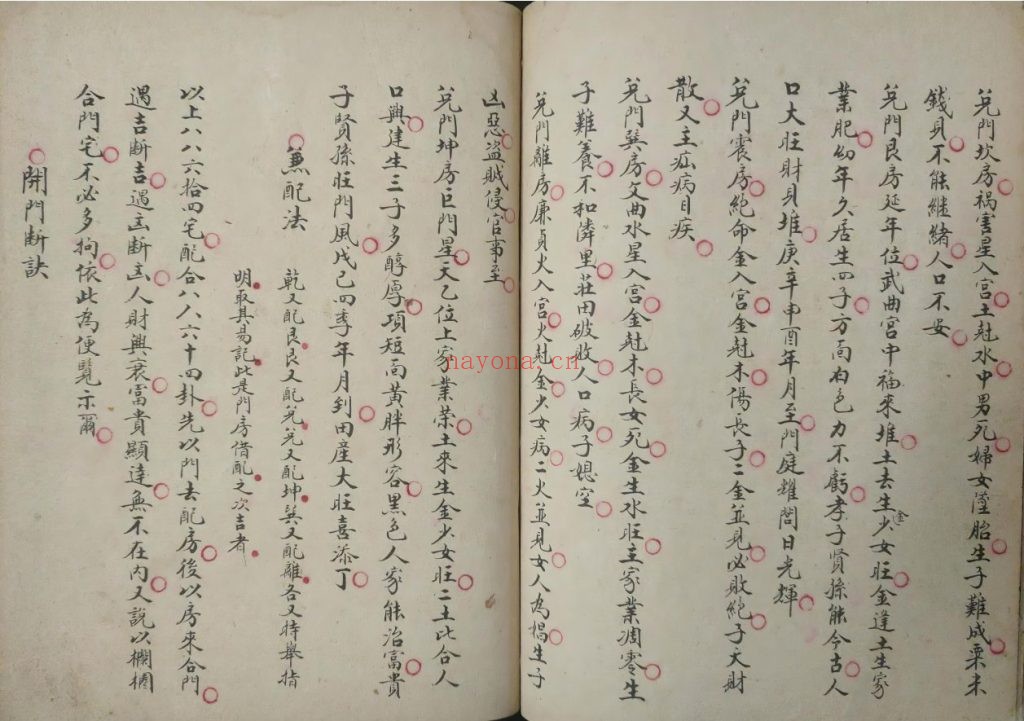 兌門坎房祸害星入宮土尅水中男死婦女墮胎生子難成粟米
錢貝不能継緒人口不安
兌門艮房延年位武曲宮中福來堆土去生少女旺金逢土生家
業肥幼年久居生四子方面白色力不虧孝子賢孫能今古人
口大旺財貝堆庚辛申酉年月至門庭耀問日光輝
兌門震房絶命金入宮金尅木傷長子二金並見必敗絶子欠財
散又主疝病目疾
兌門巽房文曲水星入宮金尅木長女死金生水旺主家業凋零生
子難養不和隣里莊田破敗人口病子媳空
兌門離房廉貞火入宮火尅金少女病二火並見女人為娼生子
凶惡盗賊侵官事至
兌門坤房巨門星天乙位上家業榮土來生金少女旺二土比合人
口興建生三子多醇厚項短面黃胖形容黑色人家能治富貴
子賢孫旺門風戊己四季年月到田産大旺喜添丁
兼配法
乾又配艮艮又配兌兌又配坤巽又配離各又時舉指
明取其易記此是門房借配之次吉者
以上八八六拾四宅配合八八六十四卦先以門去配房後以房來合門
遇吉断吉遇凶断凶人財興衰富貴顯達無不在内又說以欄圈
合門宅不必多拘依此為便覧示爾
開門断訣
nayona.cn